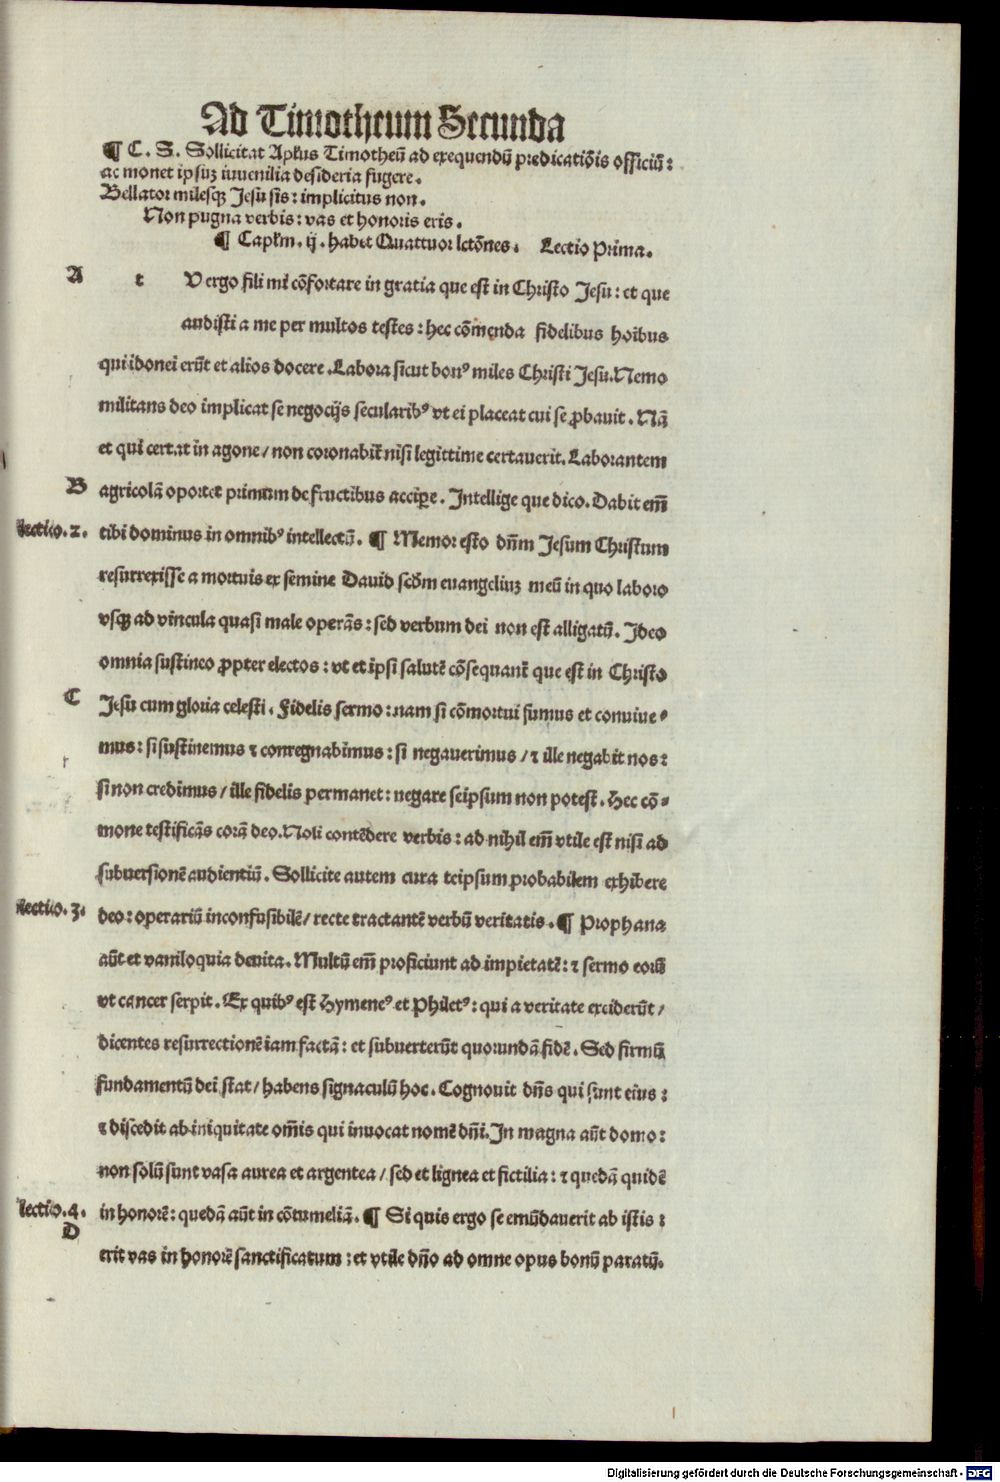 Ad Timotheum Secunda
¶ C. S. Sollicitat Apłus Timotheū ad exequendū predicatiōis officiū:
ac monet ipsuꝫ iuvenilia desideria fugere.
Bellator milesqꝫ Jesu sis: implicitus non.
Non pugna verbis: vas et honoris eris.
¶ Capłm. ij. habet Quattuor lctōnes. Lectio Prima.
A t V ergo fili mi cōfortare in gratia que est in Christo Jesu: et que
audisti a me per multos testes: hec cōmenda fidelibus hoībus
qui idonei erūt et alios docere. Labora sicut bonꝰ miles Christi Jesu. Nemo
militans deo implicat se negocijs secularibꝰ vt ei placeat cui se ꝓbauit. Nā
et qui certat in agone/ non coronabit̄ nisi legittime certauerit. Laborantem
B agricolā oportet primum de fructibus accipe̱. Intellige que dico. Dabit em̄
lectio.2. tibi dominus in omnibꝰ intellectū. ¶ Memor esto dn̄m Jesum Christum
resurrexisse a mortuis ex semine David scd̄m euangeliuꝫ meū in quo laboro
vsqꝫ ad vincula quasi male operās: sed verbum dei non est alligatū. Ideo
omnia sustineo ꝓpter electos: vt et ipsi salutē cōsequant̄ que est in Christo
C Jesu cum gloria celesti. Fidelis sermo: nam si cōmortui sumus et conuiue⸗
mus: si sustinemus ⁊ conregnabimus: si negauerimus/ ⁊ ille negabit nos:
si non credimus/ ille fidelis permanet: negare seipsum non potest. Hec cō⸗
mone testificās corā deo. Noli contēdere verbis: ad nihil em̄ vtile est nisi ad
subuersionē audientiū. Sollicite autem cura teipsum probabilem exhibere
lectio.3. deo: operariū inconfusibilē/ recte tractantē verbū veritatis. ¶ Prophana
aūt et vaniloquia deuita. Multū em̄ proficiunt ad impietatē: ⁊ sermo eorū
vt cancer serpit. Ex quibꝰ est Hymeneꝰ et Philetꝰ: qui a veritate exciderūt/
dicentes resurrectionē iam factā: et subuerterūt quorundā fidē. Sed firmū
fundamentū dei stat/ habens signaculū hoc. Cognouit dn̄s qui sunt eius:
⁊ discedit ab iniquitate om̄is qui inuocat nomē dn̄i. In magna aūt domo:
non solū sunt vasa aurea et argentea/ sed et lignea et fictilia: ⁊ quedā quidē
lectio.4. in honorē: quedā aūt in cōtumeliā. ¶ Si quis ergo se emūdauerit ab istis:
D erit vas in honorē sanctificatum: et vtile dn̄o ad omne opus bonū paratū.
Digitalisierung gefördert durch die Deutsche Forschungsgemeinschaft - DFG